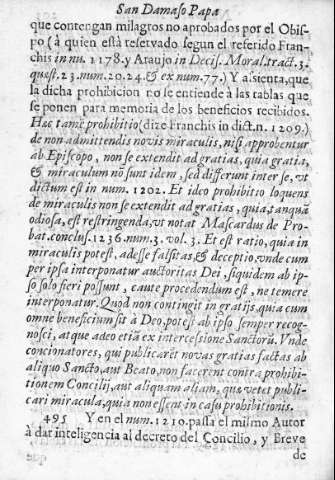 San Damaso Papa
que contengan milagros no aprobados por el Obis-
po (à quien està reservado segun el referido Fran-
chis in nu. 1178. y Araujo in Decis. Moral. tract. 3.
quæst. 23. num. 20. 24. & ex num. 77.) Y assienta, que
la dicha prohibicion no se entiende à las tablas que
se ponen para memoria de los beneficios recibidos.
Hæc tamẽ prohibitio (dize Franchis in dict. n. 1209.)
de non admittendis novis miraculis, nisi approbentur
ab Episcopo, non se extendit ad gratias, quia gratia,
& miraculum nõ sunt idem, sed differunt inter se, vt
dictum est in num. 1202. Et ideo prohibitio loquens
de miraculis non se extendit ad gratias, quia, tanquã
odiosa, est restringenda, vt notat Mascardus de Pro-
bat. conclus. 1236. num. 3. vol. 3. Et est ratio, quia in
miraculis potest, adesse falsitas, & deceptio, vnde cum
per ipsa interponatur auctoritas Dei, siquidem ab ip-
so solo fieri possunt, caute procedendum est, ne temere
interponatur. Quod non contingit in gratijs, quia cum
omne beneficium sit à Deo, potest ab ipso semper recog-
nosci, atque adeo etiã ex intercessione Sanctorũ. Vnde
concionatores, qui publicarẽt novas gratias factas ab
aliquo Sancto, aut Beato, non facerent contra prohibi-
tionem Concilij, aut aliquam aliam, quæ vetet publi-
cari miracula, quia non essent in casu prohibitionis.
495 Y en el num. 1210. passa el mismo Autor
à dar inteligencia al decreto del Concilio, y Breve
de